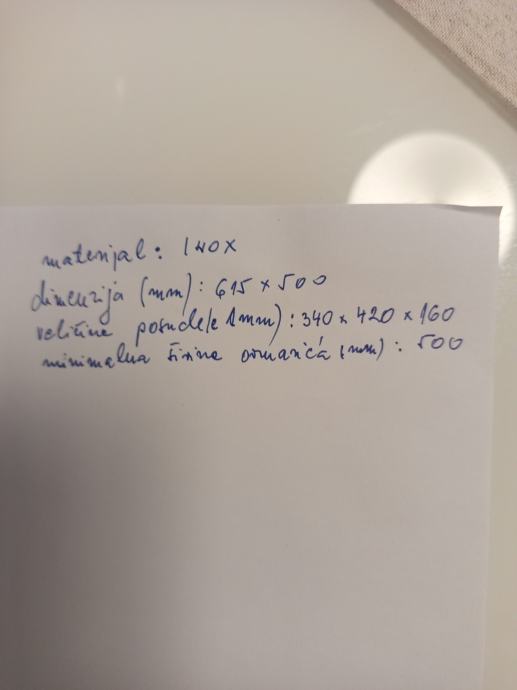 materijal: INOX
dimenzija (mm): 615 x 500
veličine posude/e (mm): 340 x 420 x 160
minimalna širine ormarića (mm): 500